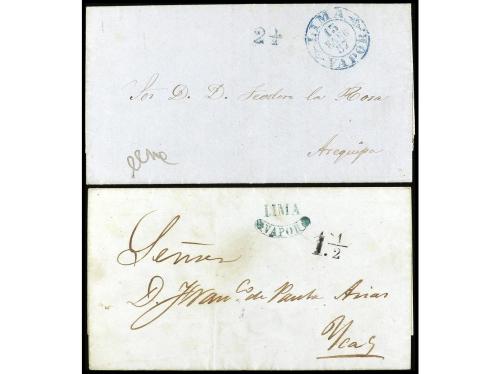 2½
LIMA
15
57
VAPOR
Sor D. D. Teodoro la Rosa
Arequipa
LIMA
VAPOR
1.½
Señor
D. Franco. de Paula Arias
Yca